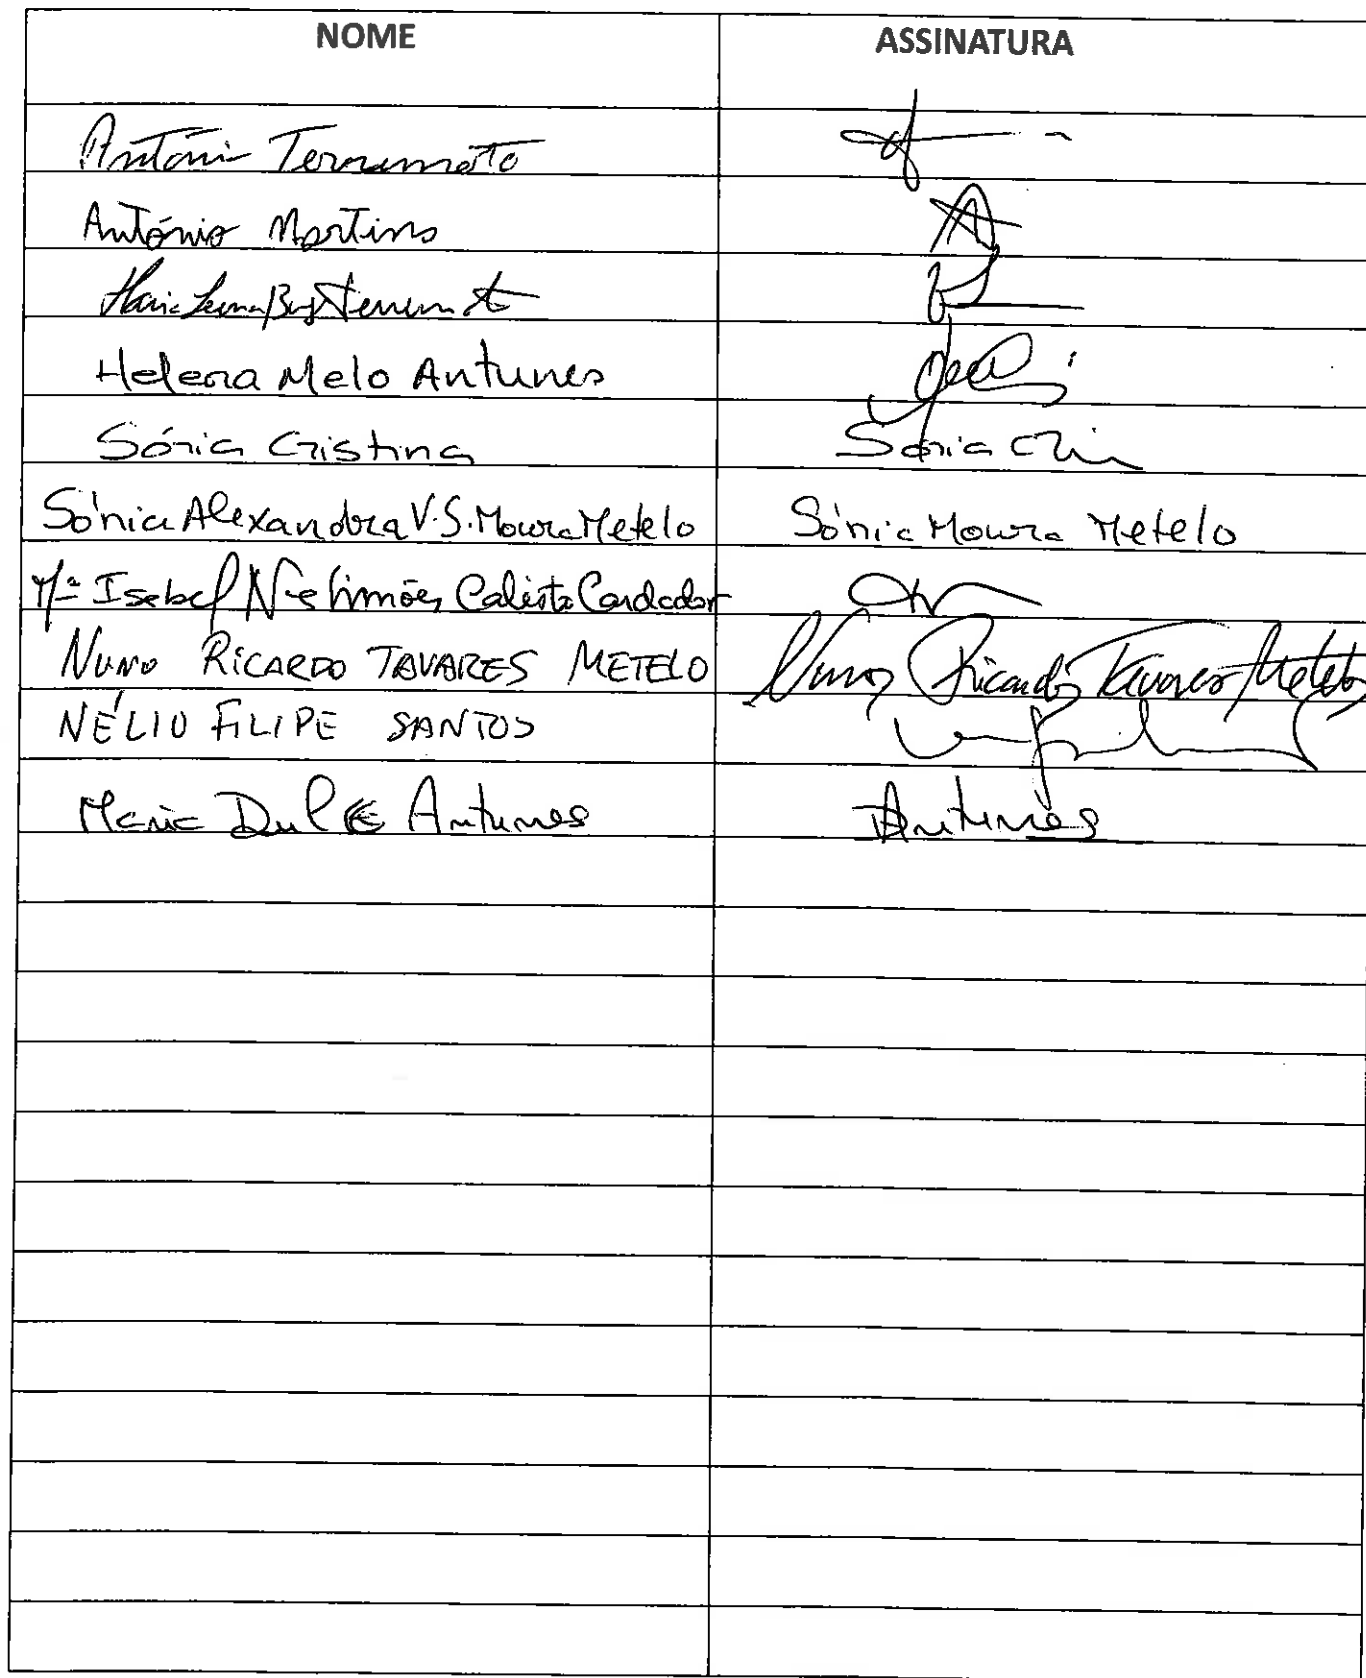 NOME ASSINATURA
António Terramoto
António Martins
Maria
Helena Melo Antunes
Sónia Cristina Sónia
Sónia Alexandra V.S. Moura Metelo Sónia Moura Metelo
Mª Isabel Simões Calisto Cardador
NUNO RICARDO TAVARES METELO Nuno Ricardo Tavares Metelo
NÉLIO FILIPE SANTOS
Maria Dulce Antunes Antunes